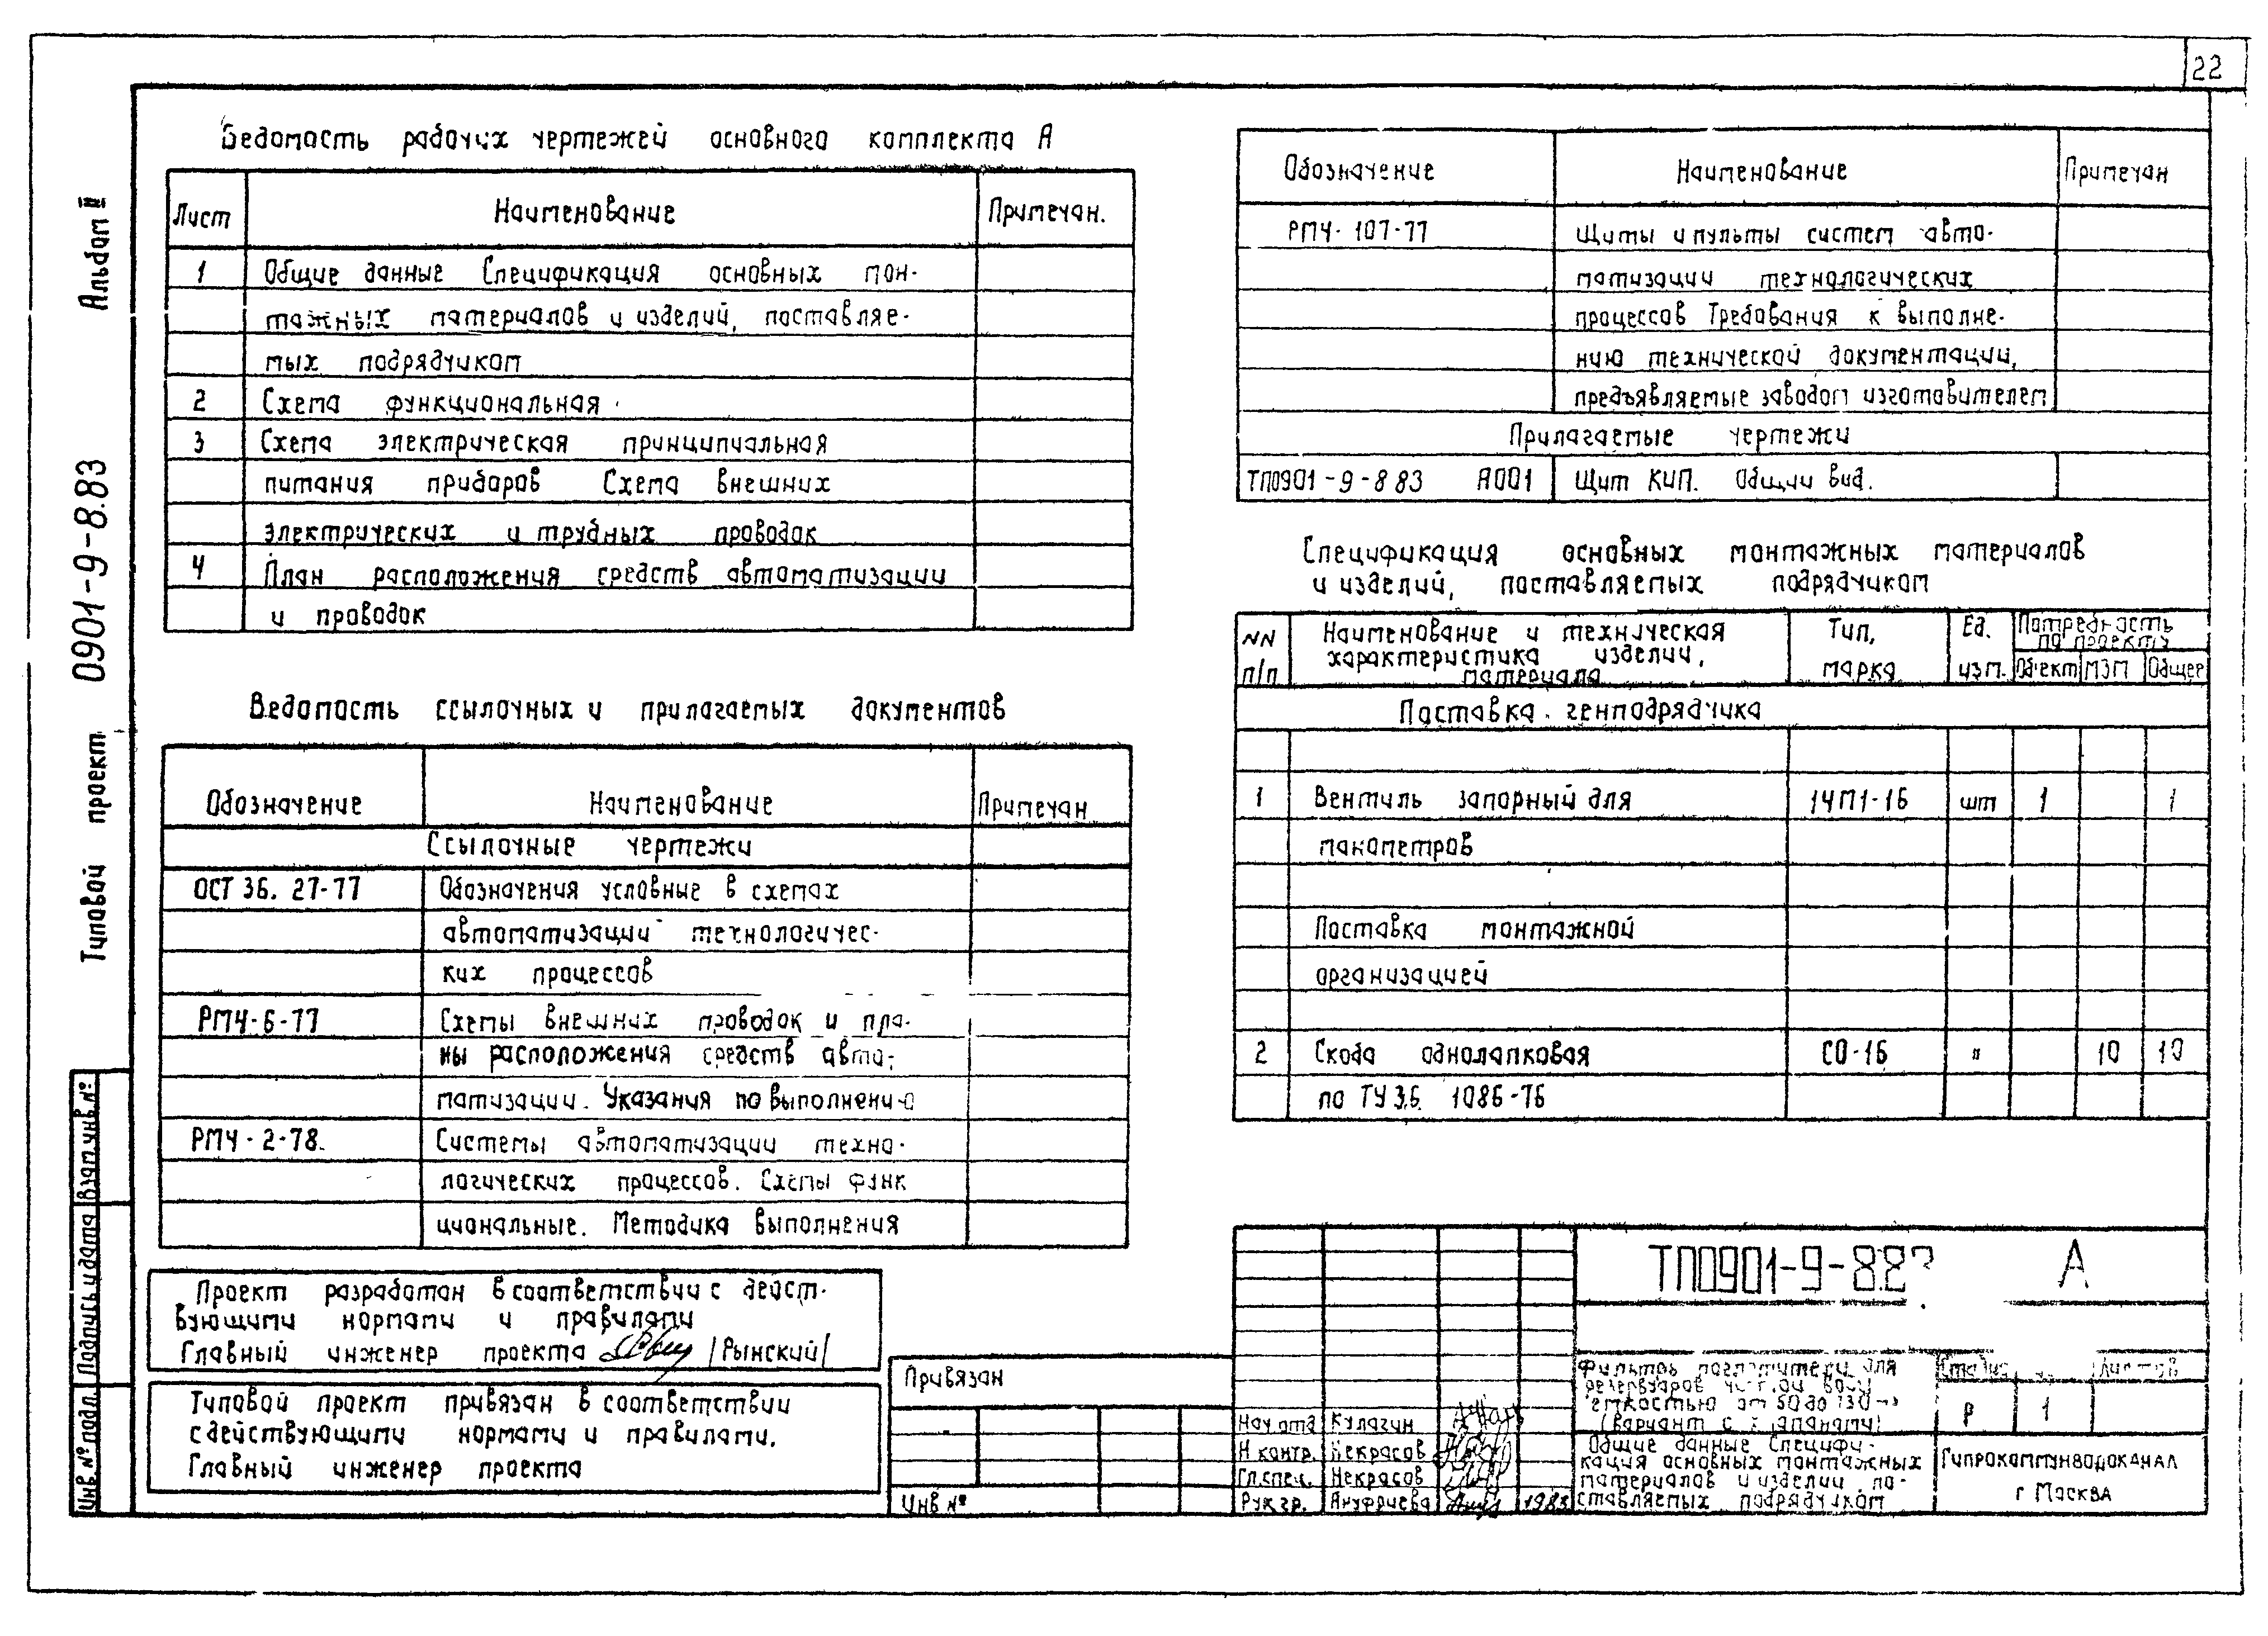 22
Ведомость рабочих чертежей основного комплекта А
Лист Наименование Примечан.
1 Общие данные Спецификация основных мон-
тажных материалов и изделий, поставляе-
мых подрядчиком
2 Схема функциональная
3 Схема электрическая принципиальная
питания приборов Схема внешних
электрических и трубных проводок
4 План расположения средств автоматизации
и проводок
Ведомость ссылочных и прилагаемых документов
Обозначение Наименование Примечан
Ссылочные чертежи
ОСТ 36. 27-77 Обозначения условные в схемах
автоматизации технологичес-
ких процессов
РМ4-6-77 Схемы внешних проводок и пла-
ны расположения средств авто-
матизации. Указания по выполнению
РМ4-2-78. Системы автоматизации техно-
логических процессов. Схемы функ
циональные. Методика выполнения
Проект разработан в соответствии с дейст-
вующими нормами и правилами
Главный инженер проекта /Рынский/
Типовой проект привязан в соответствии
с действующими нормами и правилами.
Главный инженер проекта
Обозначение Наименование Примечан
РМ4-107-77 Щиты и пульты систем авто-
матизации технологических
процессов Требования к выполне-
нию технической документации,
предъявляемые заводом изготовителем
Прилагаемые чертежи
ТП0901-9-8 83 А001 Щит КИП. Общий вид.
Спецификация основных монтажных материалов
и изделий, поставляемых подрядчиком
NN п/п Наименование и техническая характеристика изделий, материала Тип, марка Ед. изм. Потребность по проекту
Объект МЗМ Общее
Поставка генподрядчика
1 Вентиль запорный для 14М1-16 шт 1 1
манометров
Поставка монтажной
организацией
2 Скоба однолапковая СО-16 " 10 10
по ТУ 36. 1086-76
Привязан
Инв №
Нач отд Кулагин
Н контр. Некрасов
Гл.спец. Некрасов
Рук.гр. Ануфриева 1983
ТП0901-9-8.8 А
Фильтры поглотители для
резервуаров чистой воды
емкостью от 50 до
(вариант с клапанами)
Стадия Листов
Р 1
Общие данные Специфи-
кация основных монтажных
материалов и изделий по-
ставляемых подрядчиком
Гипрокоммунводоканал
г Москва
Альбом II
Типовой проект 0901-9-8.83
Инв № подл. Подпись и дата Взам. инв. №